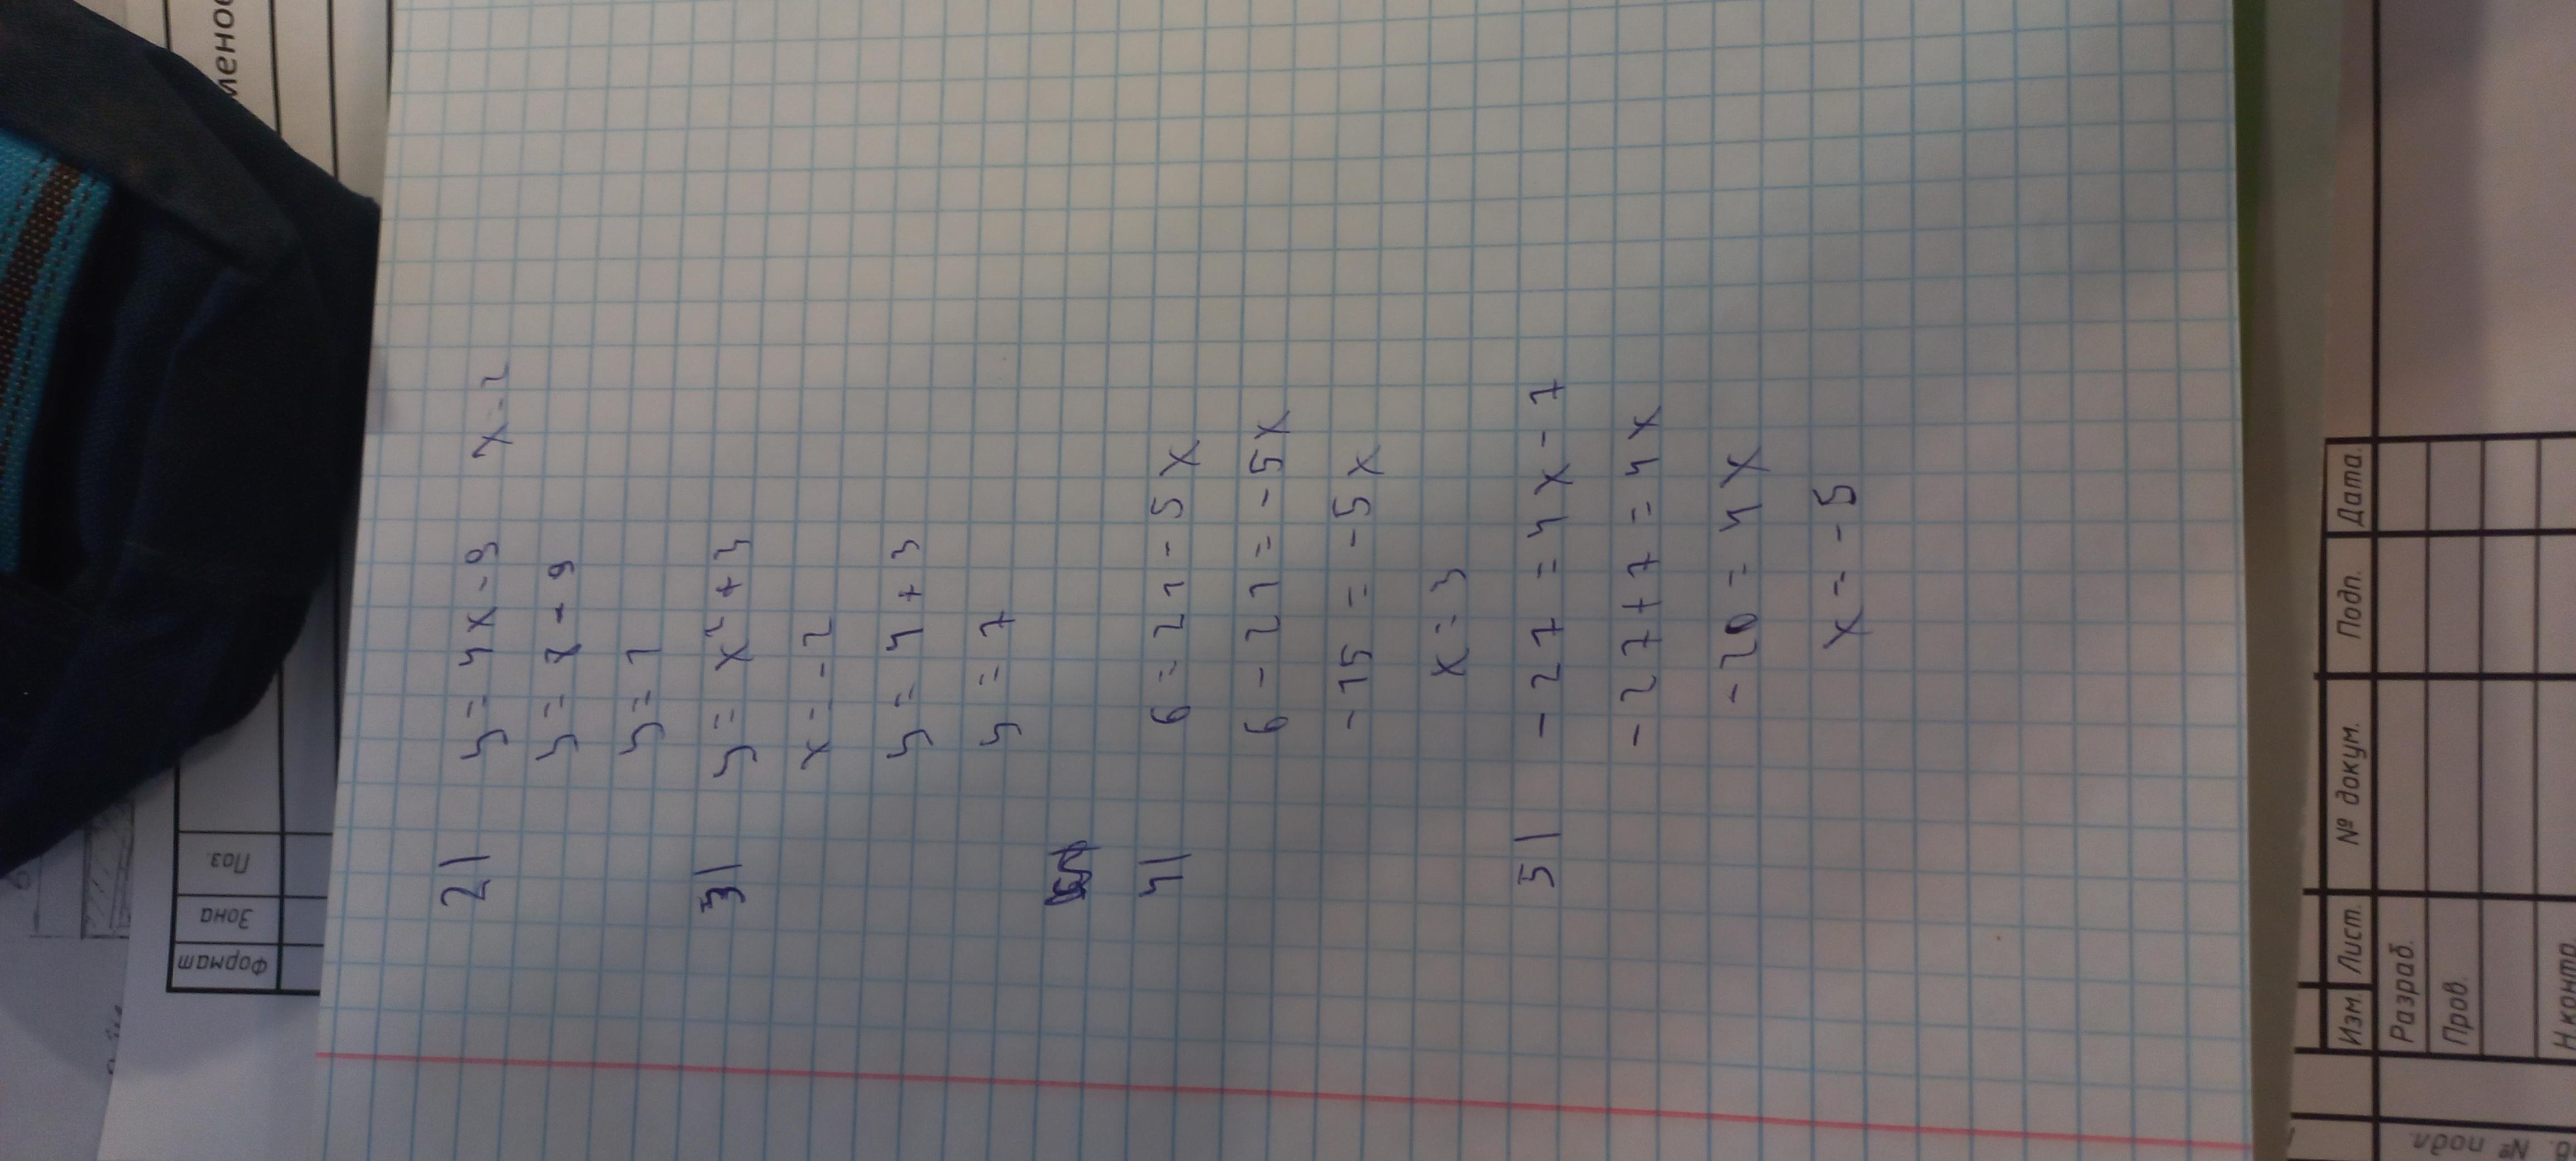 2) y = 4x - 9 x = 2
y = 8 - 9
y = 1
3) y = x² + 3
x = -2
y = 4 + 3
y = 7
4) 6 = 21 - 5x
6 - 21 = -5x
-15 = -5x
x = 3
5) -27 = 4x - 7
-27 + 7 = 4x
-20 = 4x
x = -5
Формат
Зона
Поз.
Изм. Лист. № докум. Подп. Дата.
Разраб.
Пров.
Н.контр.
№ подл.